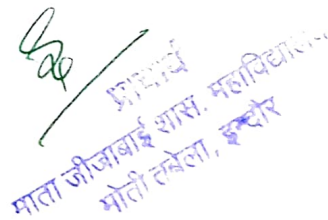 प्राचार्य
माता जीजाबाई शास. महाविद्यालय,
मोती तबेला, इन्दौर